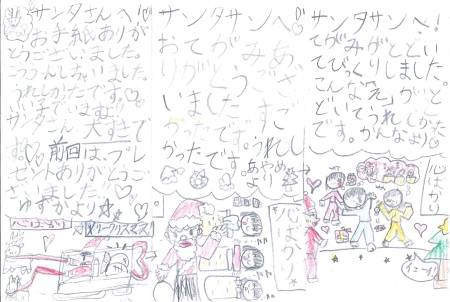 サンタさんへ!
お手紙ありが
とうございました。
うれしかったです。
サンタさん大すきで
す。前回は、プレ
ゼントありがとうご
ざいました!
ゆずかより
メリークリスマス!
サンタサンへ
おてがみあ
りがとうござ
いました
かったです。うれし
あやめ
より
心ばかり
サンタサンへ!
てがみがとどい
てびっくりしました。
こんな"え"がと
どいてうれしかった
です。かんなより
心ばかり